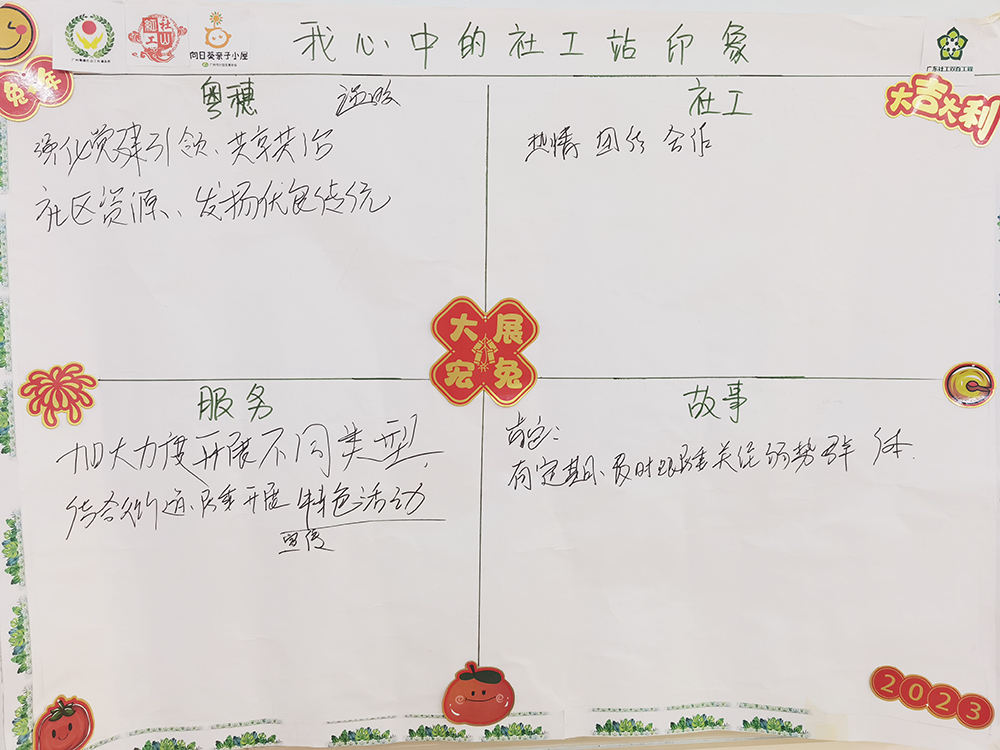 我心中的社工站印象
向日葵亲子小屋
广东社工双百工程
兔年
大吉大利
粤穗
强化党建引领、共享共治
社区资源、发扬优良传统
社工
热情 团结 合作
大展
宏兔
服务
加大力度开展不同类型,
结合街道、居委开展特色活动
宣传
故事
肯定:
有定期、及时跟居委关注弱势群体.
2023